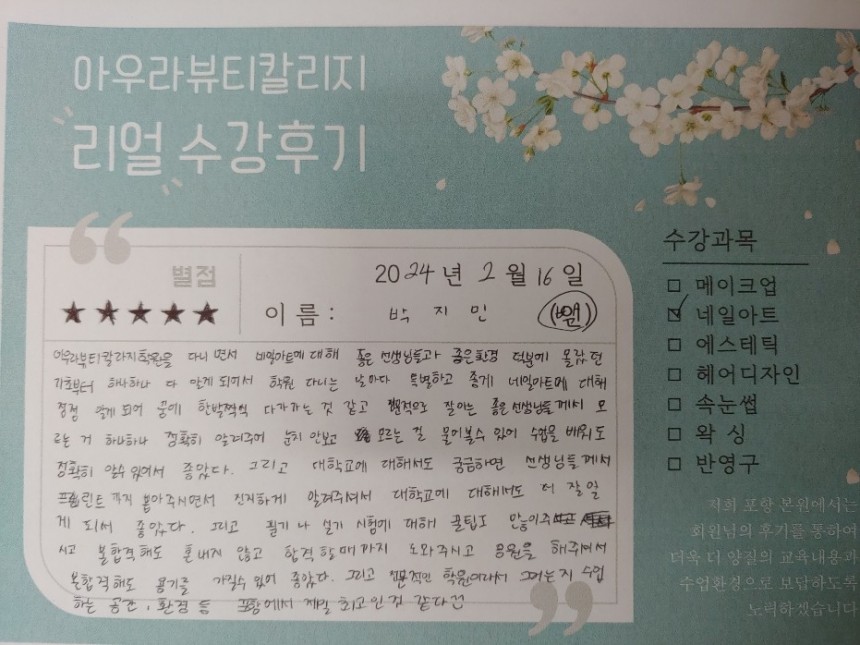 아우라뷰티칼리지
리얼 수강후기
별점
2024년 2월 16일
★★★★★
이름: 박지민
아우라뷰티칼리지학원을 다니면서 네일아트에 대해 좋은 선생님들과 좋은환경 덕분에 몰랐던
기초부터 하나하나 다 알게 되어서 학원 다니는 날마다 특별하고 즐겁게 네일아트에 대해
점점 알게 되어 꿈에 한발짝씩 다가가는 것 같고 좋은 선생님들께서 모
르는 거 하나하나 정확히 알려주어 눈치 안보고 모르는 걸 물어볼수 있어 수업을 배워도
정확히 알수있어서 좋았다. 그리고 대학교에 대해서도 궁금하면 선생님들께서
프린트까지 뽑아주시면서 진지하게 알려주셔서 대학교에 대해서도 더 잘알
게 되서 좋았다. 그리고 필기나 실기 시험에 대해 꿀팁도
시고 불합격해도 혼내지 않고 합격할때까지 도와주시고 응원을 해주어서
불합격해도 용기를 가질수 있어 좋았다. 그리고 전문적인 학원이라서 그러는지 수업
하는 공간, 환경 등 포항에서 제일 최고인것 같다
수강과목
□ 메이크업
☑ 네일아트
□ 에스테틱
□ 헤어디자인
□ 속눈썹
□ 왁싱
□ 반영구
저희 포항 본원에서는
회원님의 후기를 통하여
더욱 더 양질의 교육내용과
수업환경으로 보답하도록
노력하겠습니다